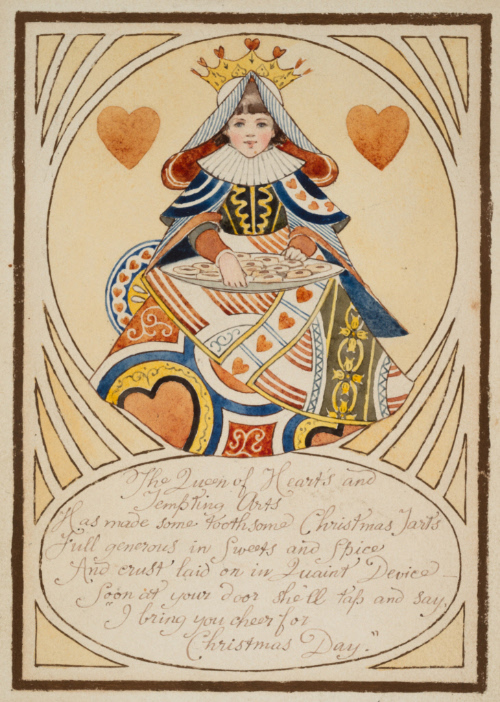 The Queen of Heart's and
Tempting Arts
Has made some toothsome Christmas Tarts
Full generous in Sweets and Spice
And crust laid on in Quaint Device
Soon at your door she'll tap and say,
"I bring you cheer for
Christmas Day."